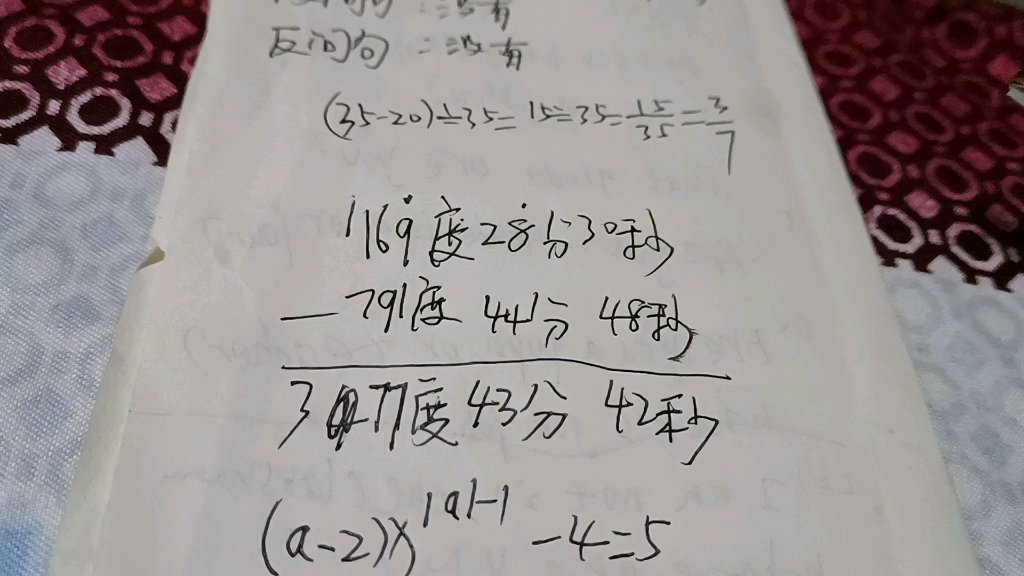 反问句：没有
(35-20)÷35=15÷35=15/35=3/7
1169度28分30秒
—791度44分48秒
377度43分42秒
(a-2)x^|a|-1 -4=5